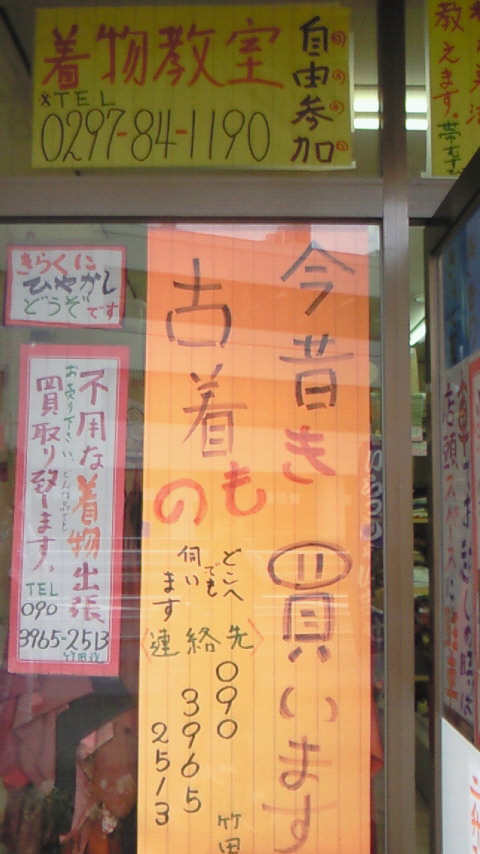 着物教室
自由参加
※TEL
0297-84-1190
教えます。
きらくに
ひやかし
どうぞです
不用な着物出張
お売り下さい。
買取り致します。
TEL
090
3965-2513
今昔きもの
古着
買います
どこへ
でも
伺い
ます
〈連絡先〉
090
3965
2513
竹田
店頭スペースに